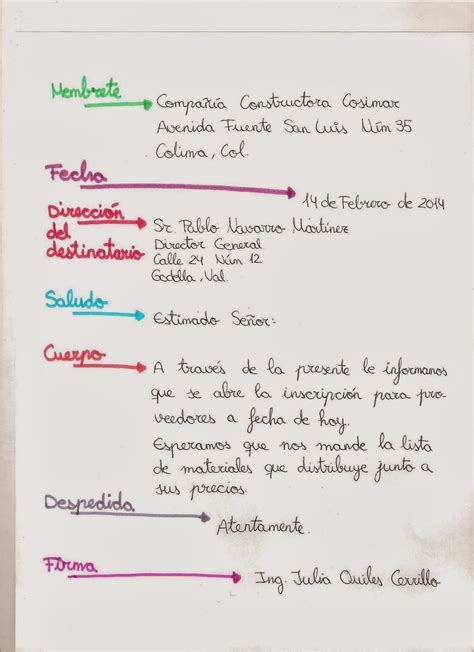 Membrete
Compañía Constructora Cosimar
Avenida Fuente San Luis Núm 35
Colima, Col.
Fecha
14 de Febrero de 2014
Dirección
del
destinatario
Sr. Pablo Navarro Martínez
Director General
Calle 24 Núm 12
Godella, Val.
Saludo
Estimado Señor:
Cuerpo
A través de la presente le informamos
que se abre la inscripción para pro-
veedores a fecha de hoy.
Esperamos que nos mande la lista
de materiales que distribuye junto a
sus precios.
Despedida
Atentamente.
Firma
Ing. Julia Quiles Cerrillo